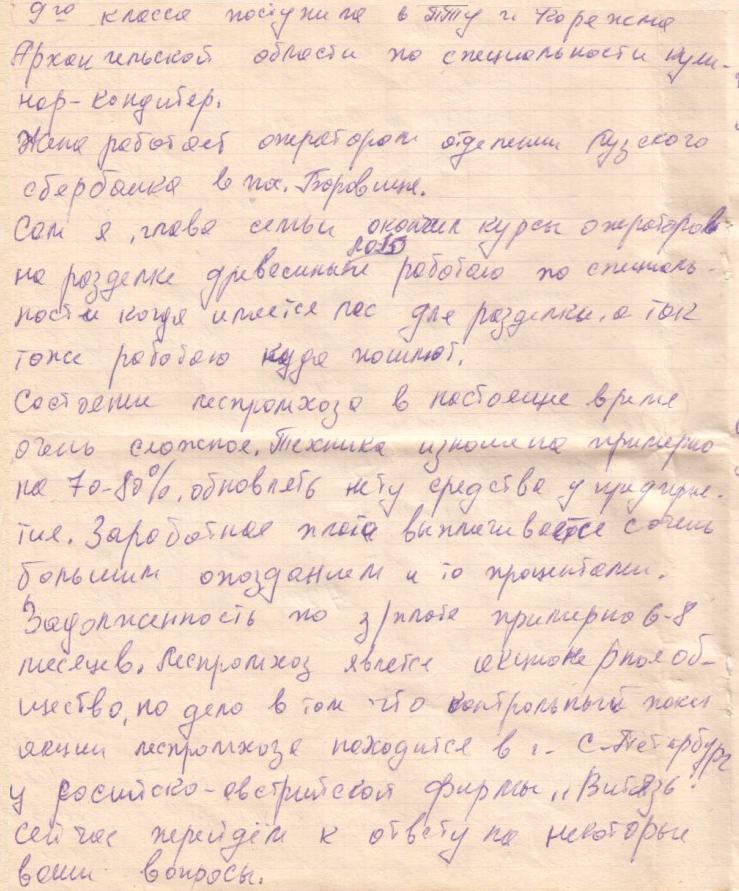 9го класса поступила в ПТУ г. Коряжма
Архангельской области по специальности кули-
нар-кондитер.
Жена работает оператором отделении Лузского
сбербанка в пос. Боровица.
Сам я, глава семьи окончил курсы операторов
на разделке древесины работаю по специаль-
ности когда имеется лес для разделки, а так
тоже работаю куда пошлют.
Состояние леспромхоза в настоящие время
очень сложное. Техника изношена примерно
на 70-80%, обновлять нету средства у предприя-
тия. Заработная плата выплачивается с очень
большим опозданием и то процентами.
Задолженность по з/плате примерно 6-8
месяцев. Леспромхоз является акционерное об-
щество, но дело в том что контрольный пакет
акции леспромхоза находится в г. С-Петербург
у росийско-австрийской фирмы „Витязь".
сейчас перейдём к ответу на некоторые
ваши вопросы.